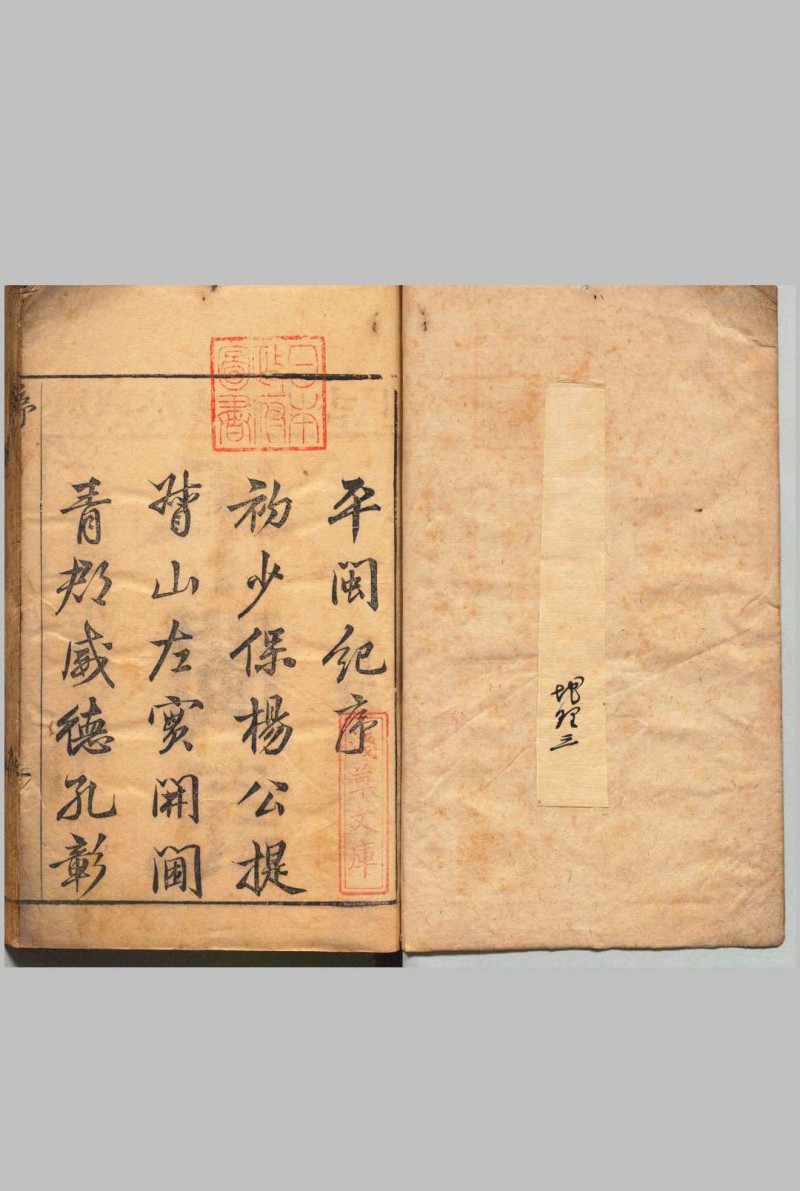 地理三
平閩紀序
初少保楊公提
督山左實開閫
青郡威德孔彰
日本政府圖書
淺草文庫
序